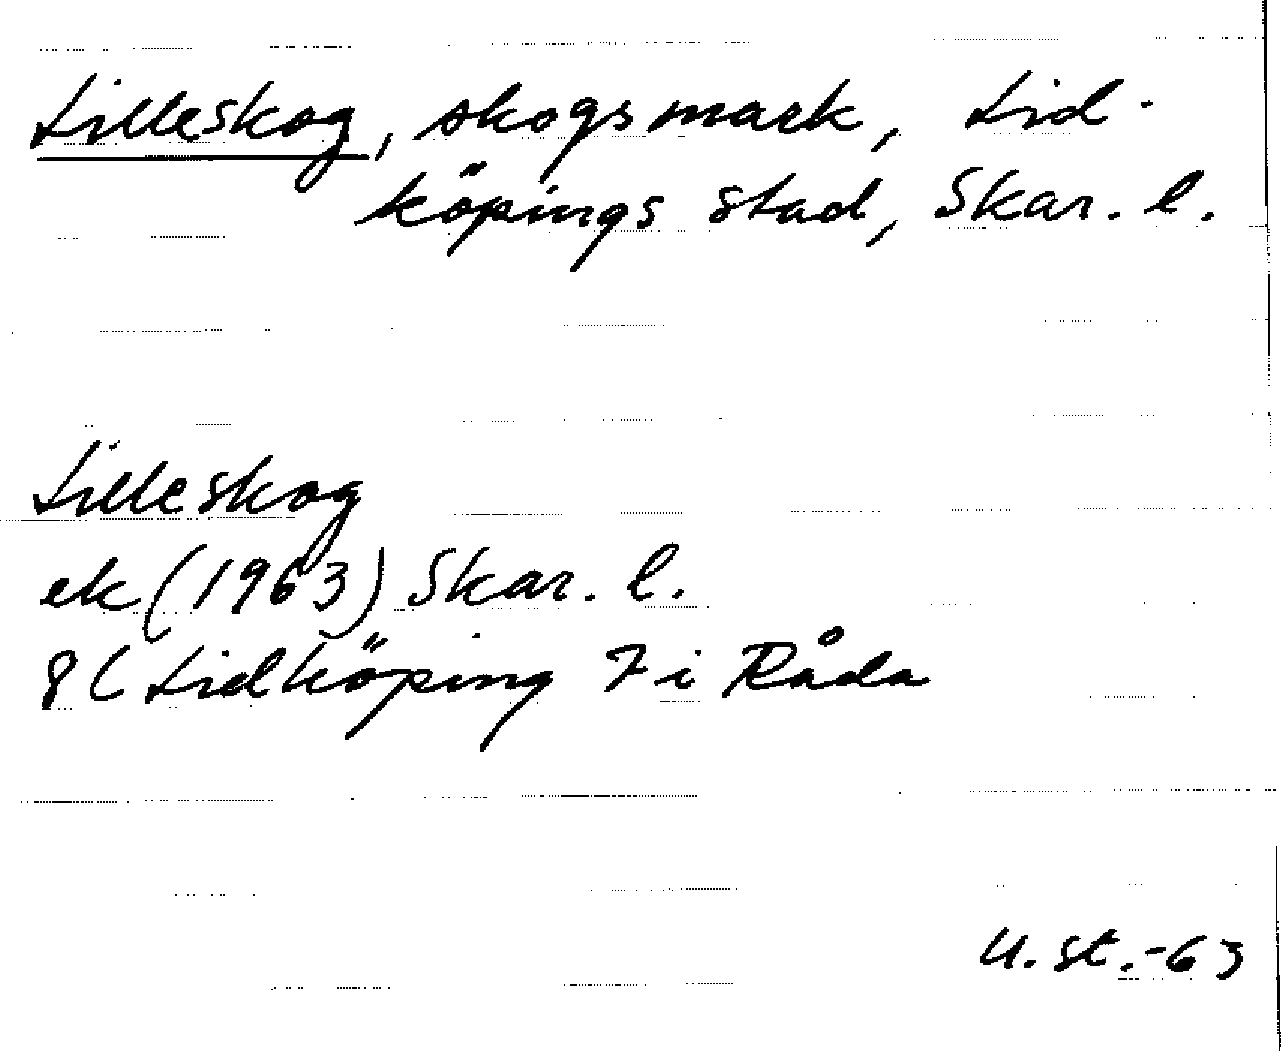 Lilleskog, skogsmark, Lid-
köpings stad, Skar. l.
Lilleskog
ek (1963) Skar. l.
8C Lidköping 7 i Råda
U. st. -63